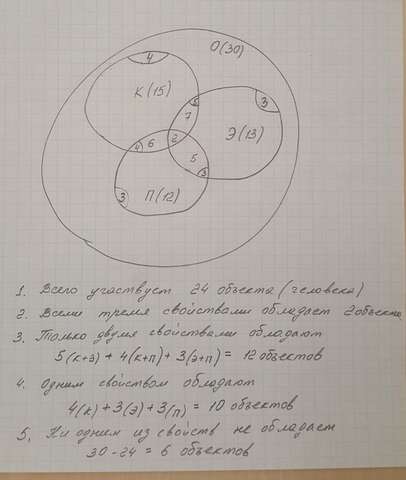 О(30)
4
К(15)
5
7
3
Э(13)
2
4
6
5
3
3
П(12)
1. Всего участвует 24 объекта (человека)
2. Всеми тремя свойствами обладает 2 объекта
3. Только двумя свойствами обладают
5(к+э) + 4(к+п) + 3(э+п) = 12 объектов
4. Одним свойством обладают
4(к) + 3(э) + 3(п) = 10 объектов
5. Ни одним из свойств не обладает
30 - 24 = 6 объектов